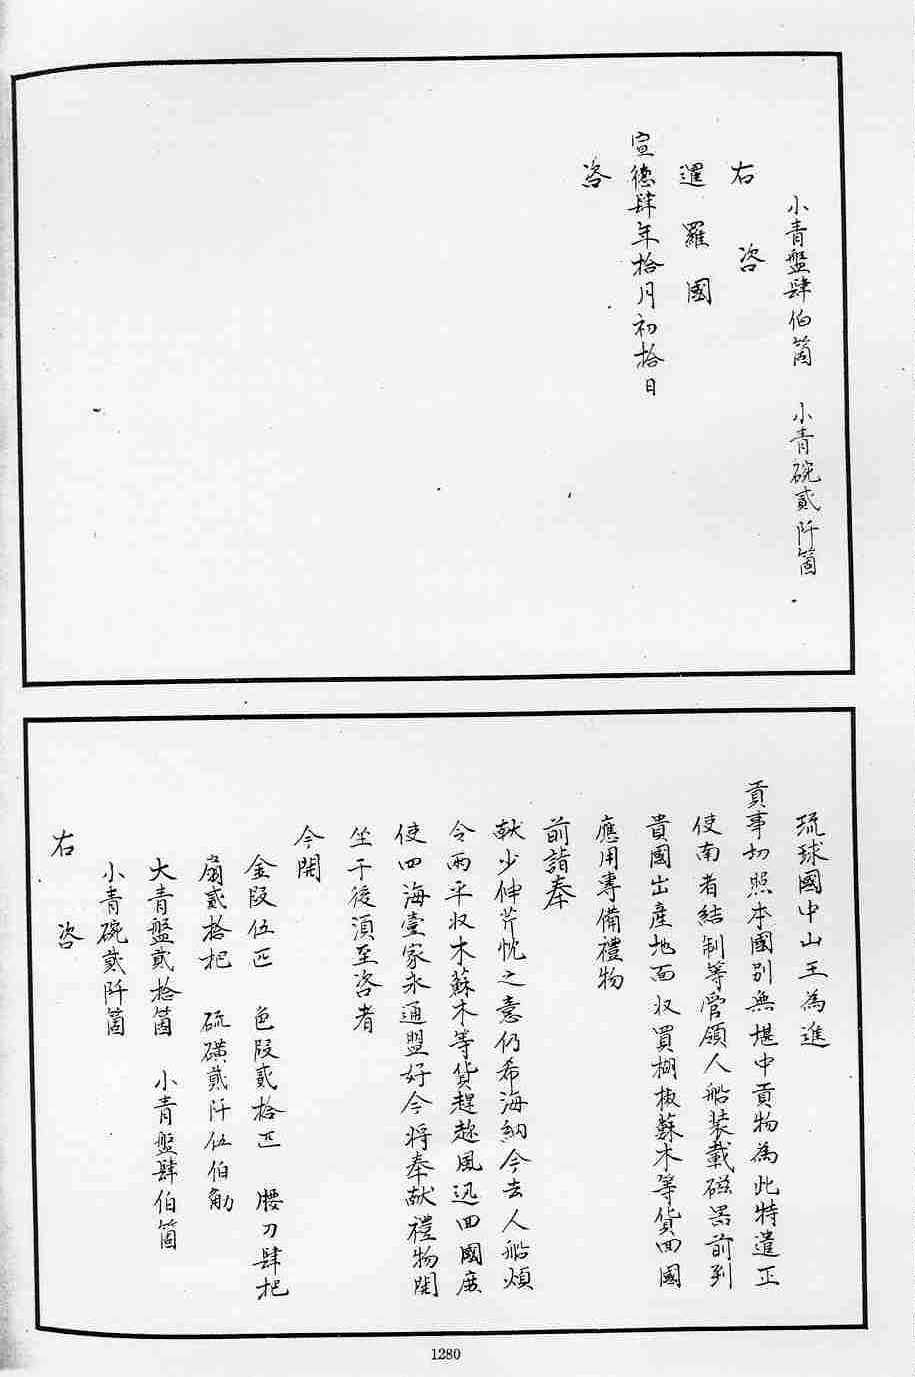 小青盤肆伯箇　小青碗貳阡箇
右　咨
暹羅國
宣德肆年拾月初拾日
咨
琉球國中山王為進
貢事切照本國別無堪中貢物為此特遣正
使南者結制等管領人船装載磁器前到
貴國出產地面収買胡椒蘇木等貨回國
應用專備禮物
前詣奉
献少伸芹忱之意仍希海納今去人船煩
令兩平収木蘇木等貨趕趂風迅回國庶
使四海壹家永通盟好今將奉献禮物開
坐于後湏至咨者
今開
金段伍匹　色段貳拾匹　腰刀肆把
扇貳拾把　硫磺貳阡伍伯觔
大青盤貳拾箇　小青盤肆伯箇
小青碗貳阡箇
右　咨
1280